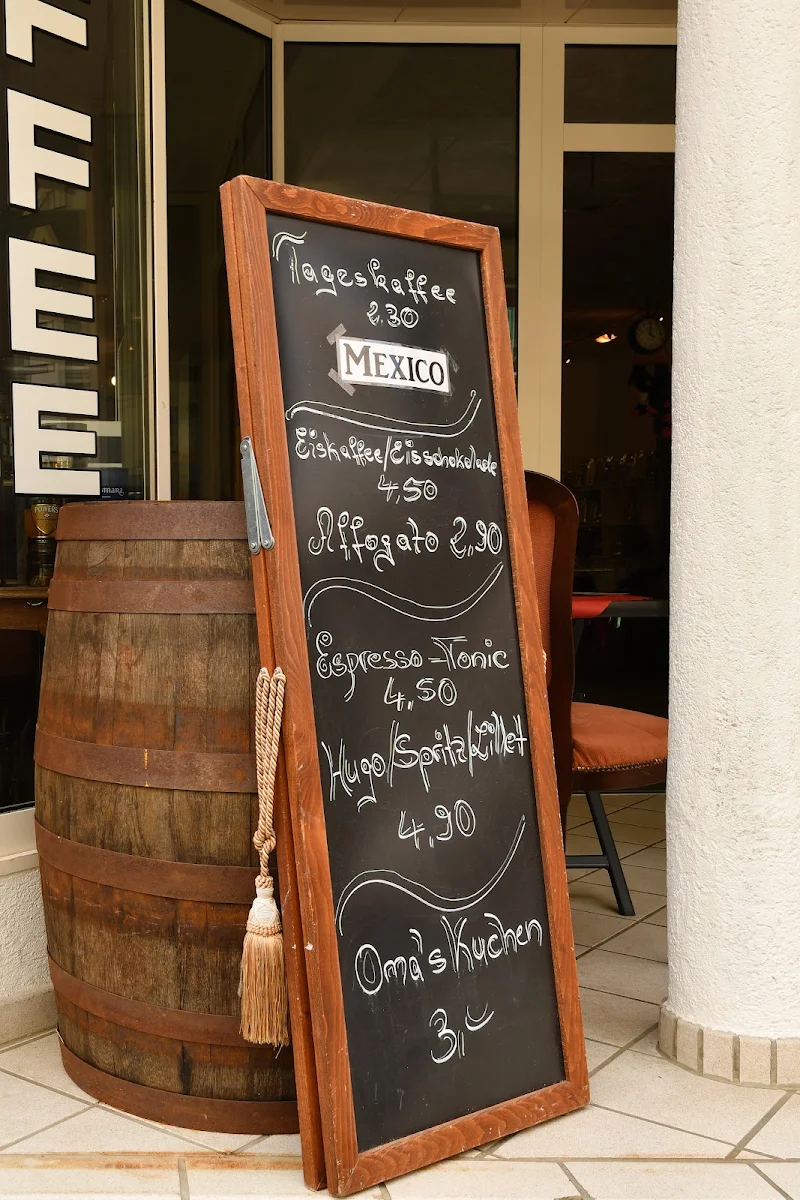 FFEE
POWERS
Tageskaffee
2.30
MEXICO
Eiskaffee/Eisschokolade
4,50
Affogato 2,90
Espresso-Tonic
4,50
Hugo/Spritz/Lillet
4,90
Oma's Kuchen
3,-